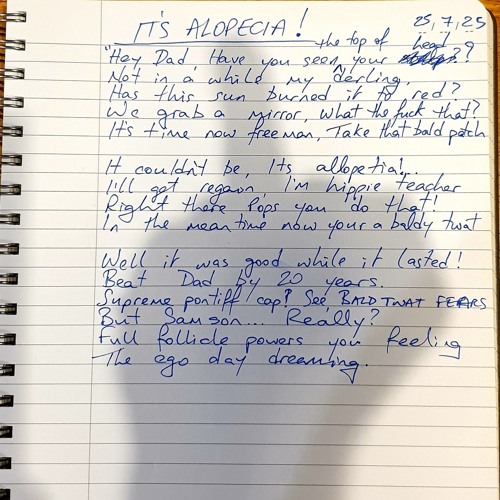 IT'S ALOPECIA!
25, 7, 25
the top of head
"Hey Dad, Have you seen your ??
Not in a while my derling,
Has this sun burned it to red?
We grab a mirror, what the fuck that?
It's time now free man, Take that bald patch
It couldn't be, Its allopetia!..
I'll get regaon, I'm hippie teacher
Right there Pops you do that!
In the mean time now your a baldy twat
Well it was good while it lasted!
Beat Dad by 20 years.
Supreme pontiff cap? See BALD TWAT FEARS
But Samson... Really?
Full follicle powers you feeling
The ego day dreaming.